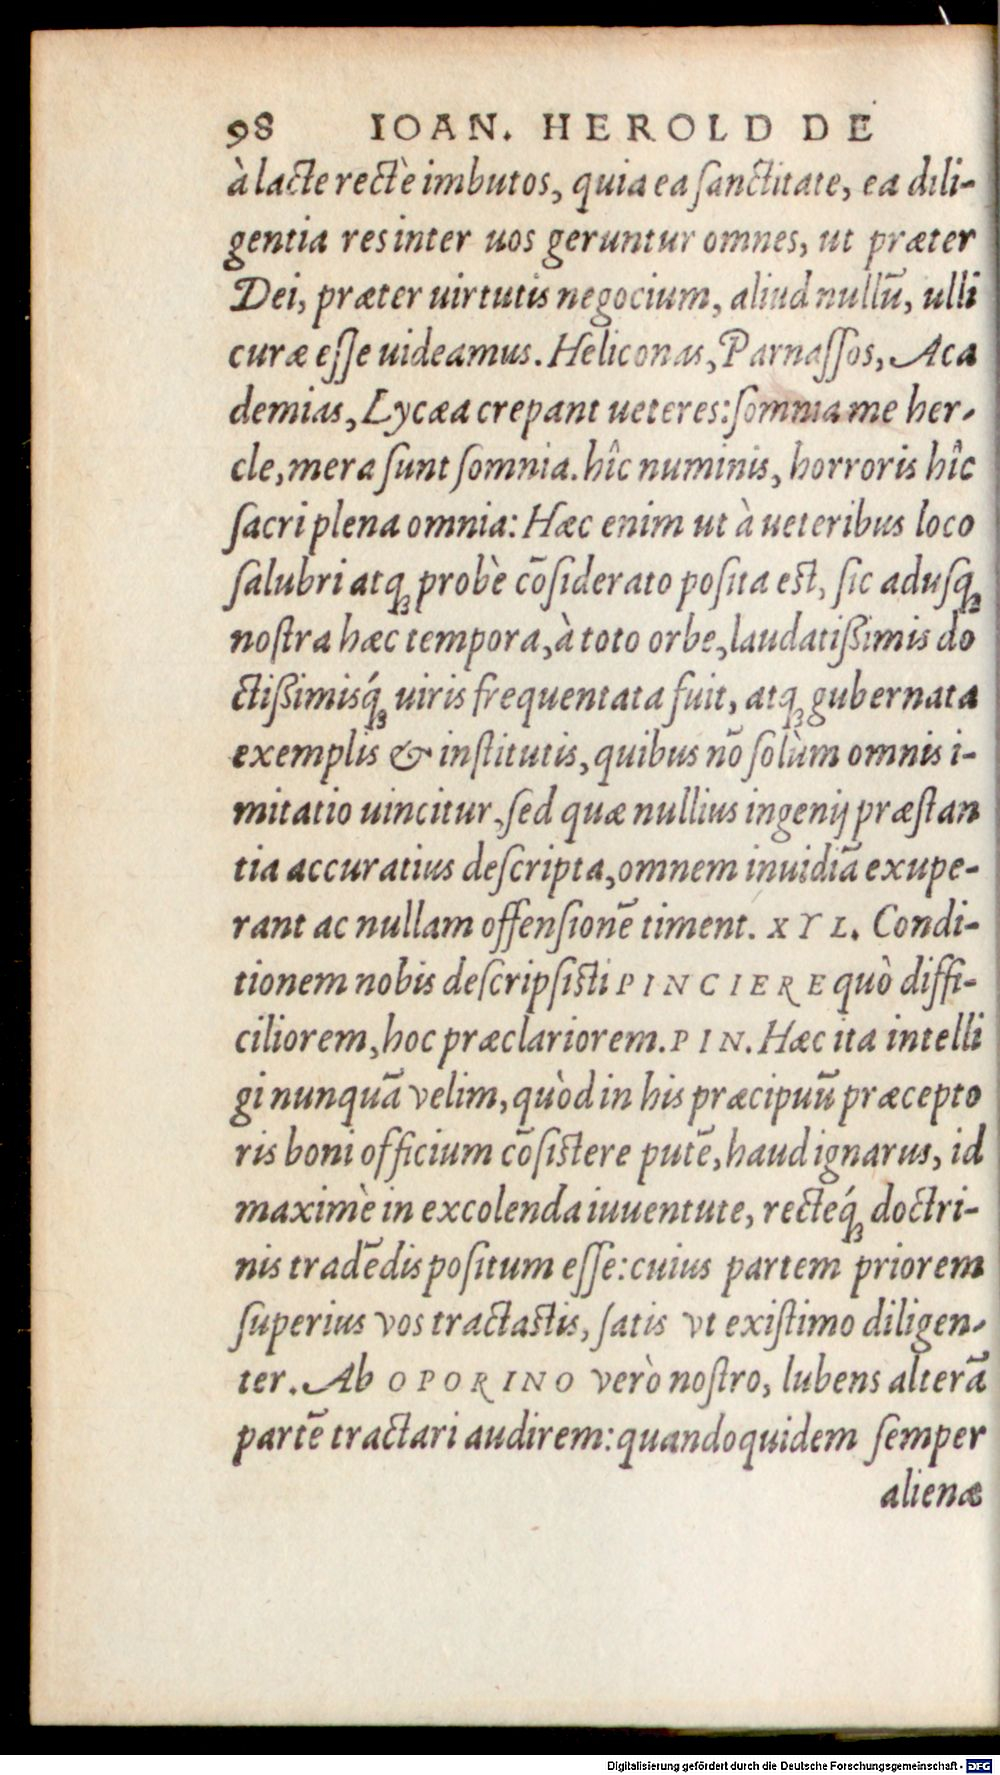 98 IOAN. HEROLD DE
à lacte rectè imbutos, quia ea ſanctitate, ea dili-
gentia res inter uos geruntur omnes, ut præter
Dei, præter uirtutis negocium, aliud nullū, ulli
curæ eſſe uideamus. Heliconas, Parnaſſos, Aca
demias, Lycæa crepant ueteres: ſomnia me her-
cle, mera ſunt ſomnia. hîc numinis, horroris hîc
ſacri plena omnia: Hæc enim ut à ueteribus loco
ſalubri atqꝫ probè cōſiderato poſita est, ſic aduſqꝫ
noſtra hæc tempora, à toto orbe, laudatiſsimis do
ctiſsimisq́ꝫ uiris frequentata fuit, atqꝫ gubernata
exemplis & inſtitutis, quibus nō ſolùm omnis i-
mitatio uincitur, ſed quæ nullius ingenij præſtan
tia accuratius deſcripta, omnem inuidiā exupe-
rant ac nullam offenſionē timent. XYL. Condi-
tionem nobis deſcripſisti PINCIERE quò diffi-
ciliorem, hoc præclariorem. PIN. Hæc ita intelli
gi nunquā velim, quòd in his præcipuū præcepto
ris boni officium cōſistere putē, haud ignarus, id
maximè in excolenda iuuentute, recteq́ꝫ doctri-
nis tradēdis poſitum eſſe: cuius partem priorem
ſuperius vos tractastis, ſatis vt exiſtimo diligen-
ter. Ab OPORINO verò noſtro, lubens alterā
partē tractari audirem: quandoquidem ſemper
alienæ
Digitalisierung gefördert durch die Deutsche Forschungsgemeinschaft - DFG